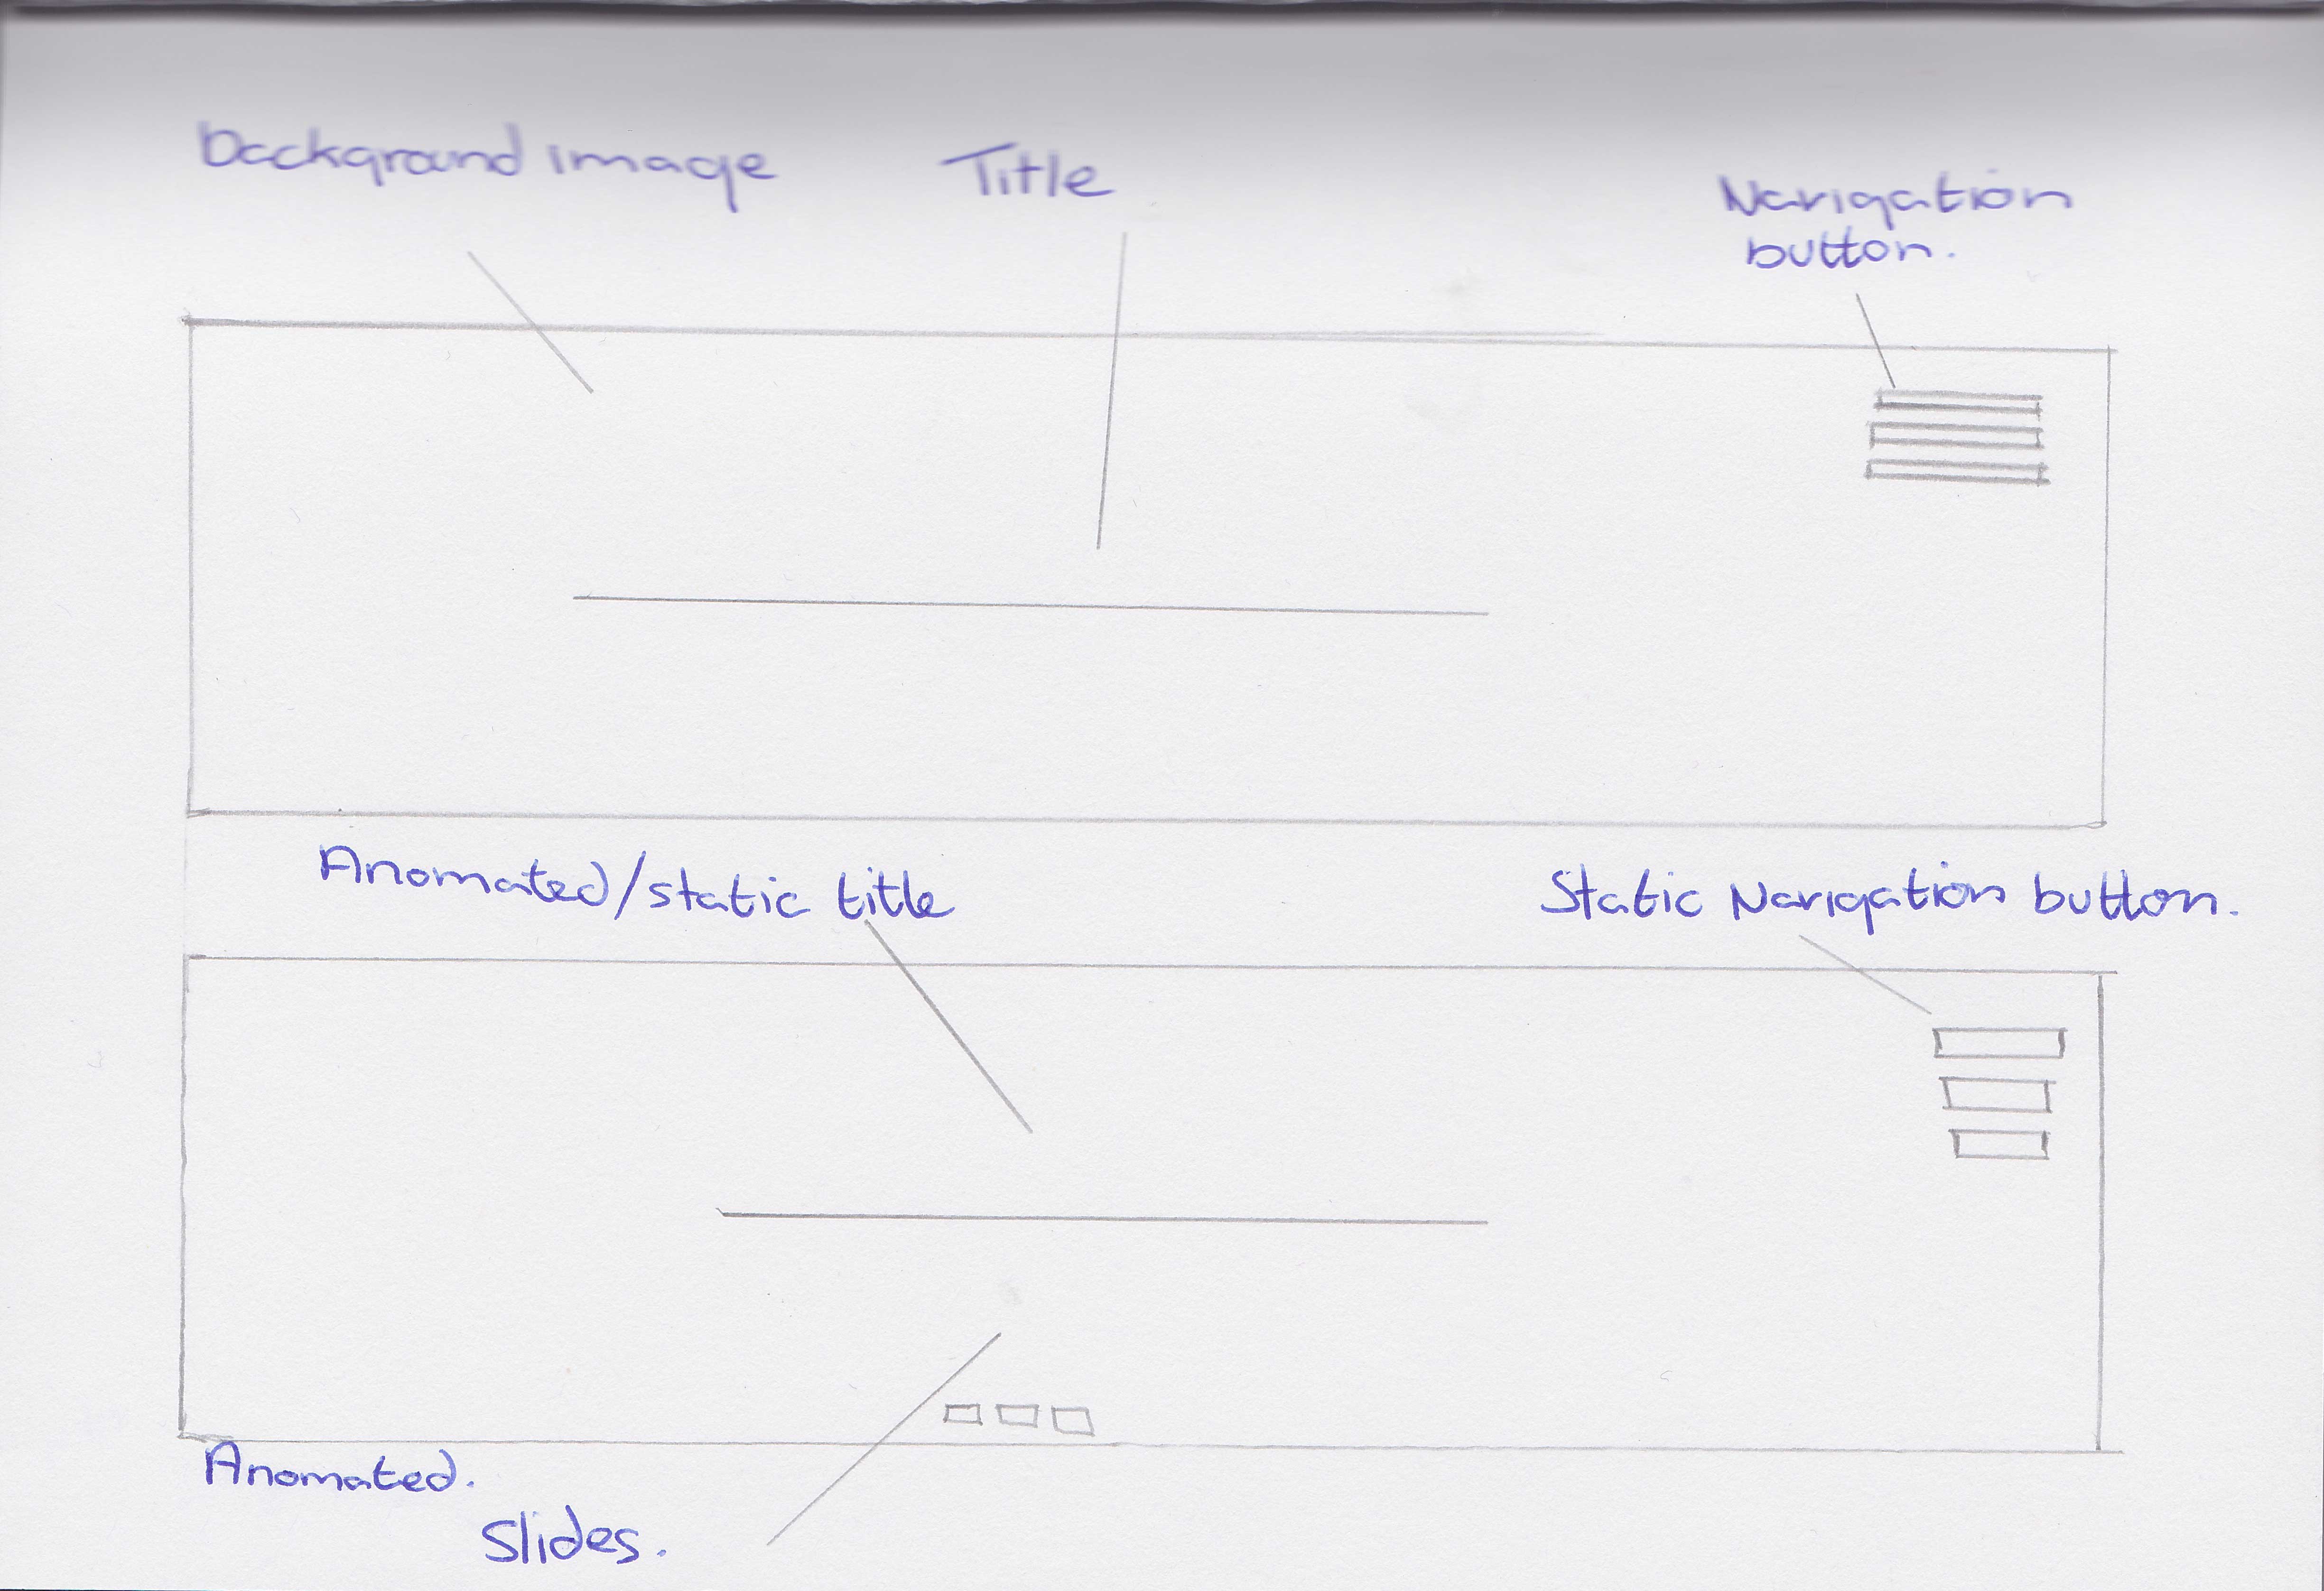 Background image
Title
Navigation
button.
Anomated/static title
Static Navigation button.
Anomated.
Slides.